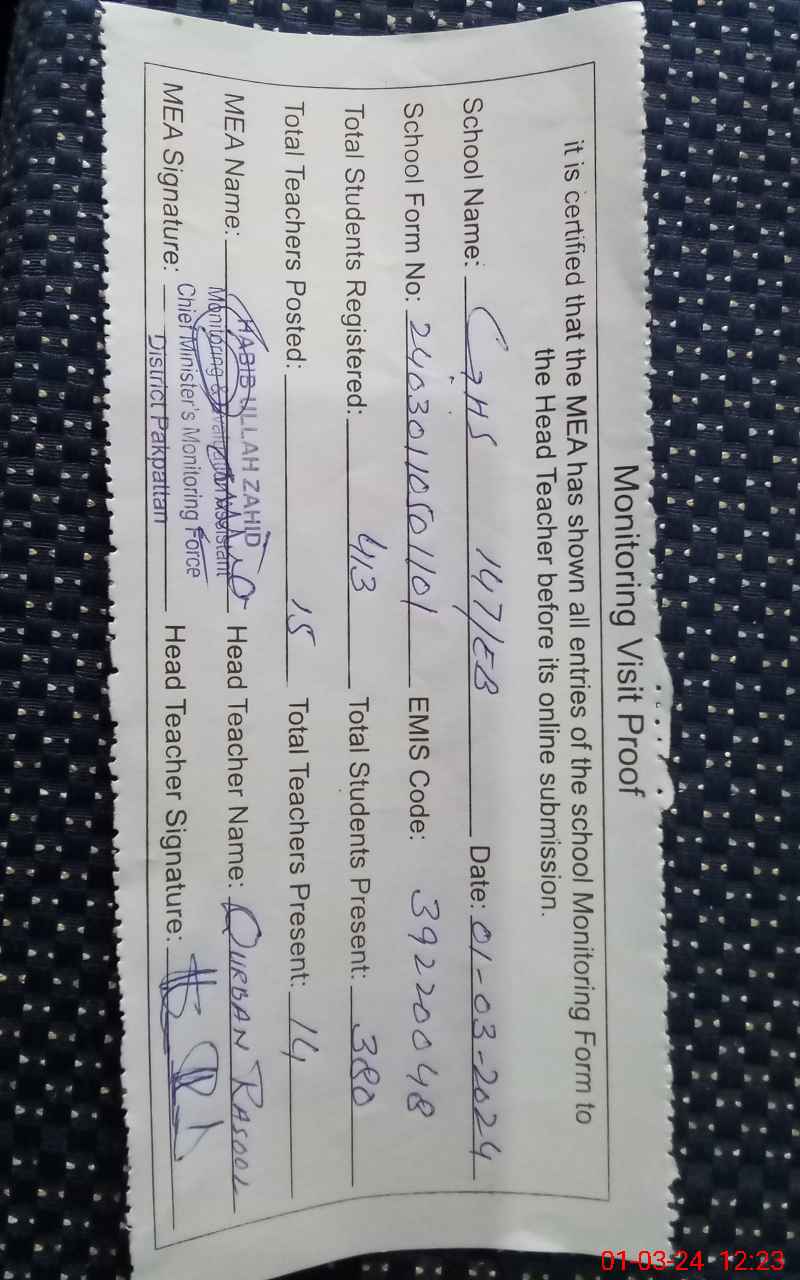 Monitoring Visit Proof
it is certified that the MEA has shown all entries of the school Monitoring Form to
the Head Teacher before its online submission.
School Name: GHS 147/EB Date: 01-03-2024
School Form No: 24030110501101 EMIS Code: 39220048
Total Students Registered: 413 Total Students Present: 380
Total Teachers Posted: 15 Total Teachers Present: 14
MEA Name: HABIB ULLAH ZAHID Head Teacher Name: QURBAN RASOOL
Monitoring & Evaluation Assistant
Chief Minister's Monitoring Force
MEA Signature: District Pakpattan Head Teacher Signature:
01-03-24 12:23